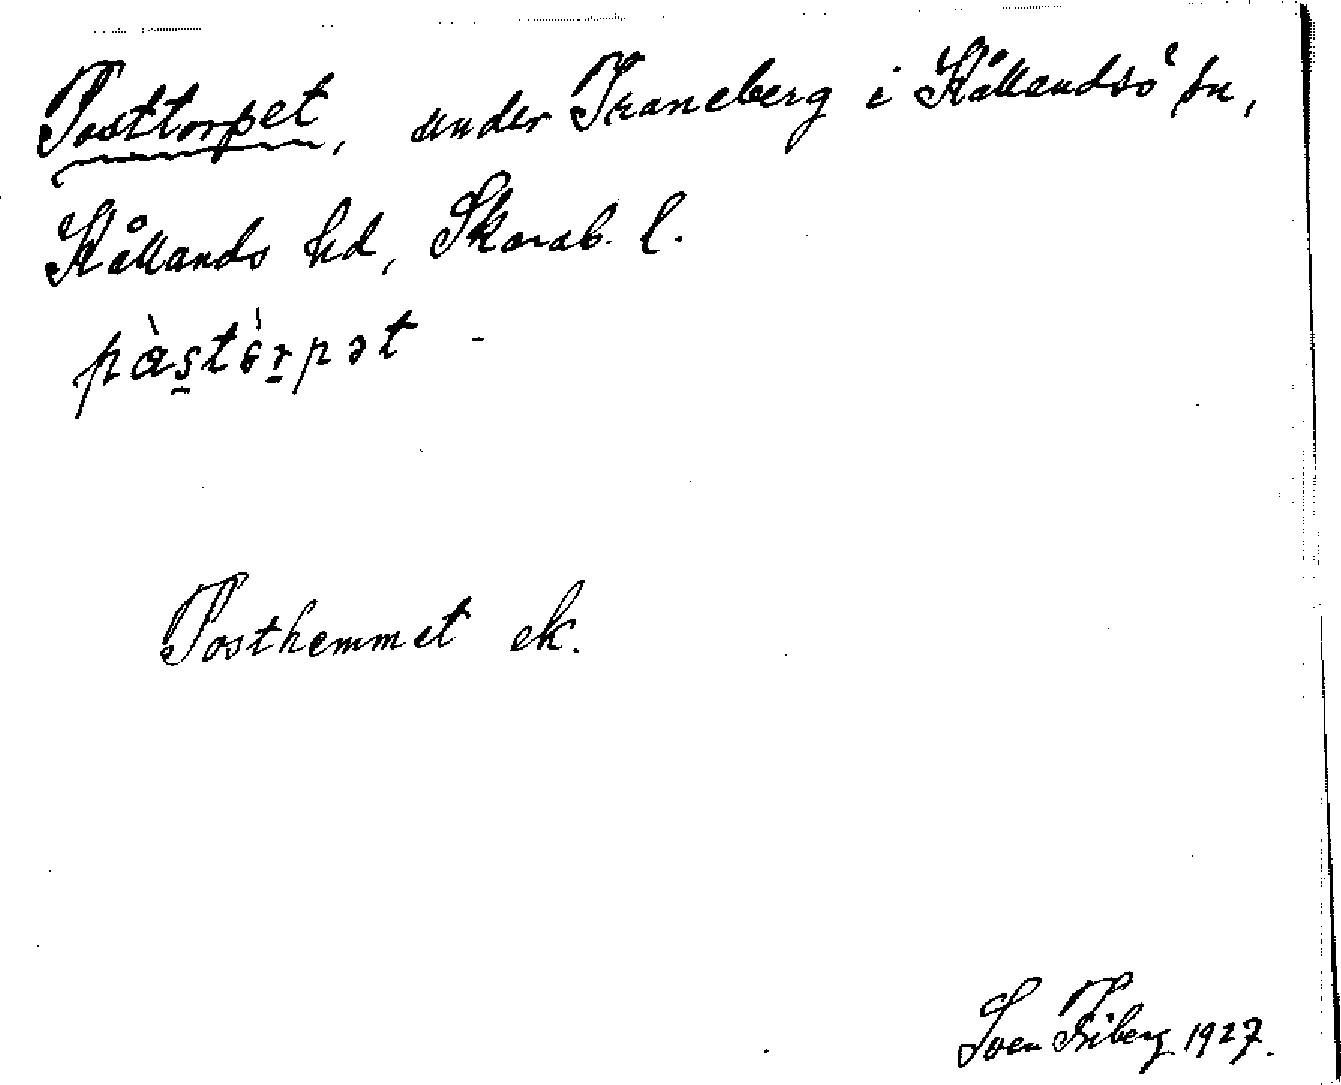 Posttorpet, under Traneberg i Kållandsö sn,
Kållands hd, Skarab. l.
pàstòrpət -
Posthemmet ek.
Sven Friberg 1927.